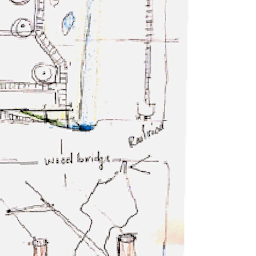 Railroad
wood bridge